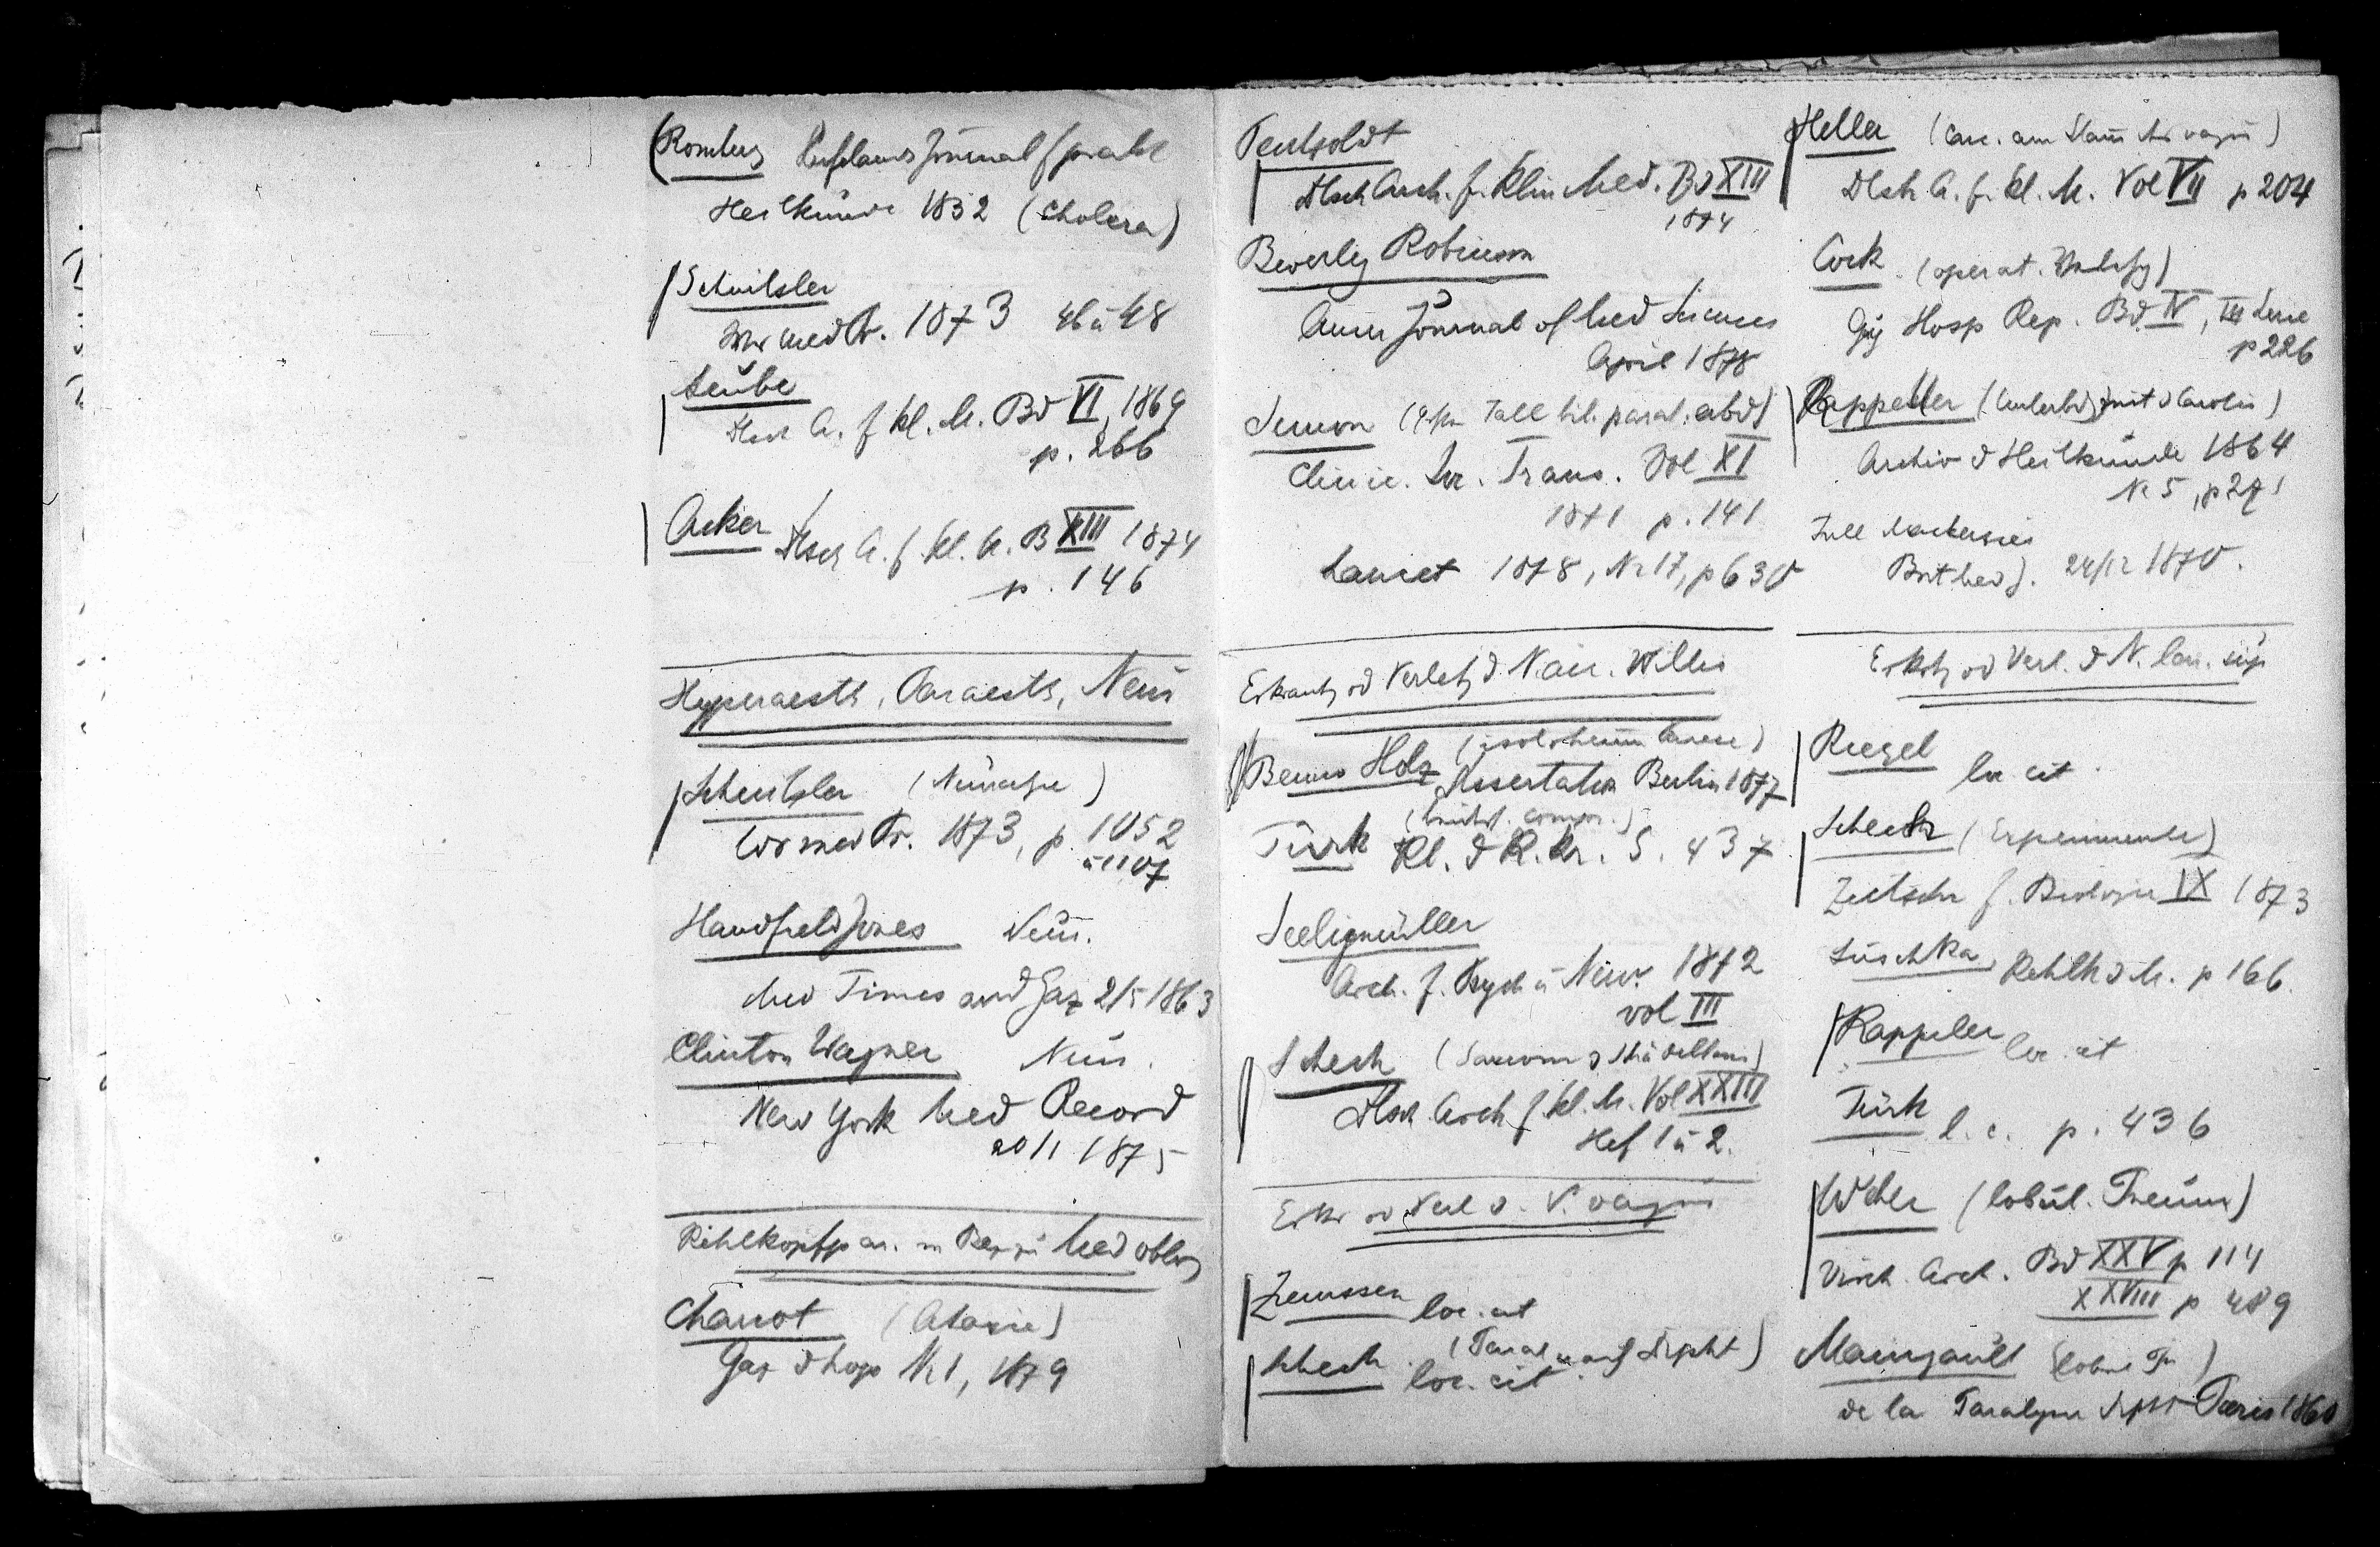 (Romberg Hufelands Journal f prakt
Heilkunde 1832 (Cholera)
Schnitzler
Wr med Pr. 1873 46 u 48
Leube
Dtsch A. f kl. M. Bd VI, 1869
p. 266
Acker Dtsch A. f. kl. M. B XIII 1874
p. 146
Hyperaesth, Paraesth, Neur
Schnitzler (Neuralgie)
Wr med Pr. 1873, p. 1052
u 1107
Handfield Jones Neur.
Med Times and Gaz 2/5 1863
Clinton Wagner Neur.
New York Med Record
20/1 1875
Kehlkopfpar. Med oblong
Charcot (Ataxie)
Gaz d hop Nr 1, 1879
Penzoldt
Dtsch Arch. f. klin Med. Bd XIII
1874
Beverley Robinson
Amer Journal of Med Sciences
April 1878
Semon
Clinic. Soc. Trans. Vol XI
p. 141
Lancet 1878, Nr 17, p 630
Erkrank od Verletz d. N acc. Willis
Benno Holz Dissertation Berlin 1877
Türk Kl. d K. Kr. S. 437
Seeligmüller
Arch. f. Psych u Nerv. 1872
vol III
Schech (Sarcom d Schädelbasis)
Dtsch Arch f. kl. M. Vol XXIII
Hef 1 u 2.
Erkr od Verl d. N. vagus
Ziemssen loc. cit
Schech (Paral nach Dipht)
loc. cit
Heller (Carc. am Stam des vagus)
Dtsch A. f. kl. M. Vol VII p 204
Cock (operat. Verletzg)
Guy Hosp Rep. Bd IV, III Serie
p 226
Kappeller (Unterbd mit d Carotis)
Archiv d Heilkunde 1864
Nr 5, p 271
Brit Med J. 24/12 1870.
Erkrk od Verl. d N. lar. sup
Riegel loc cit
Schech (Experimente)
Zeitschr f. Biologie IX 1873
Luschka, Kehlk d M. p 166.
Kappeler loc. cit
Türk l. c. p. 436
Weber (lobul. Pneum)
Virch. Arch. Bd XXV p 114
XXVIII p 489
Maingault
de la Paralysie Paris 1860